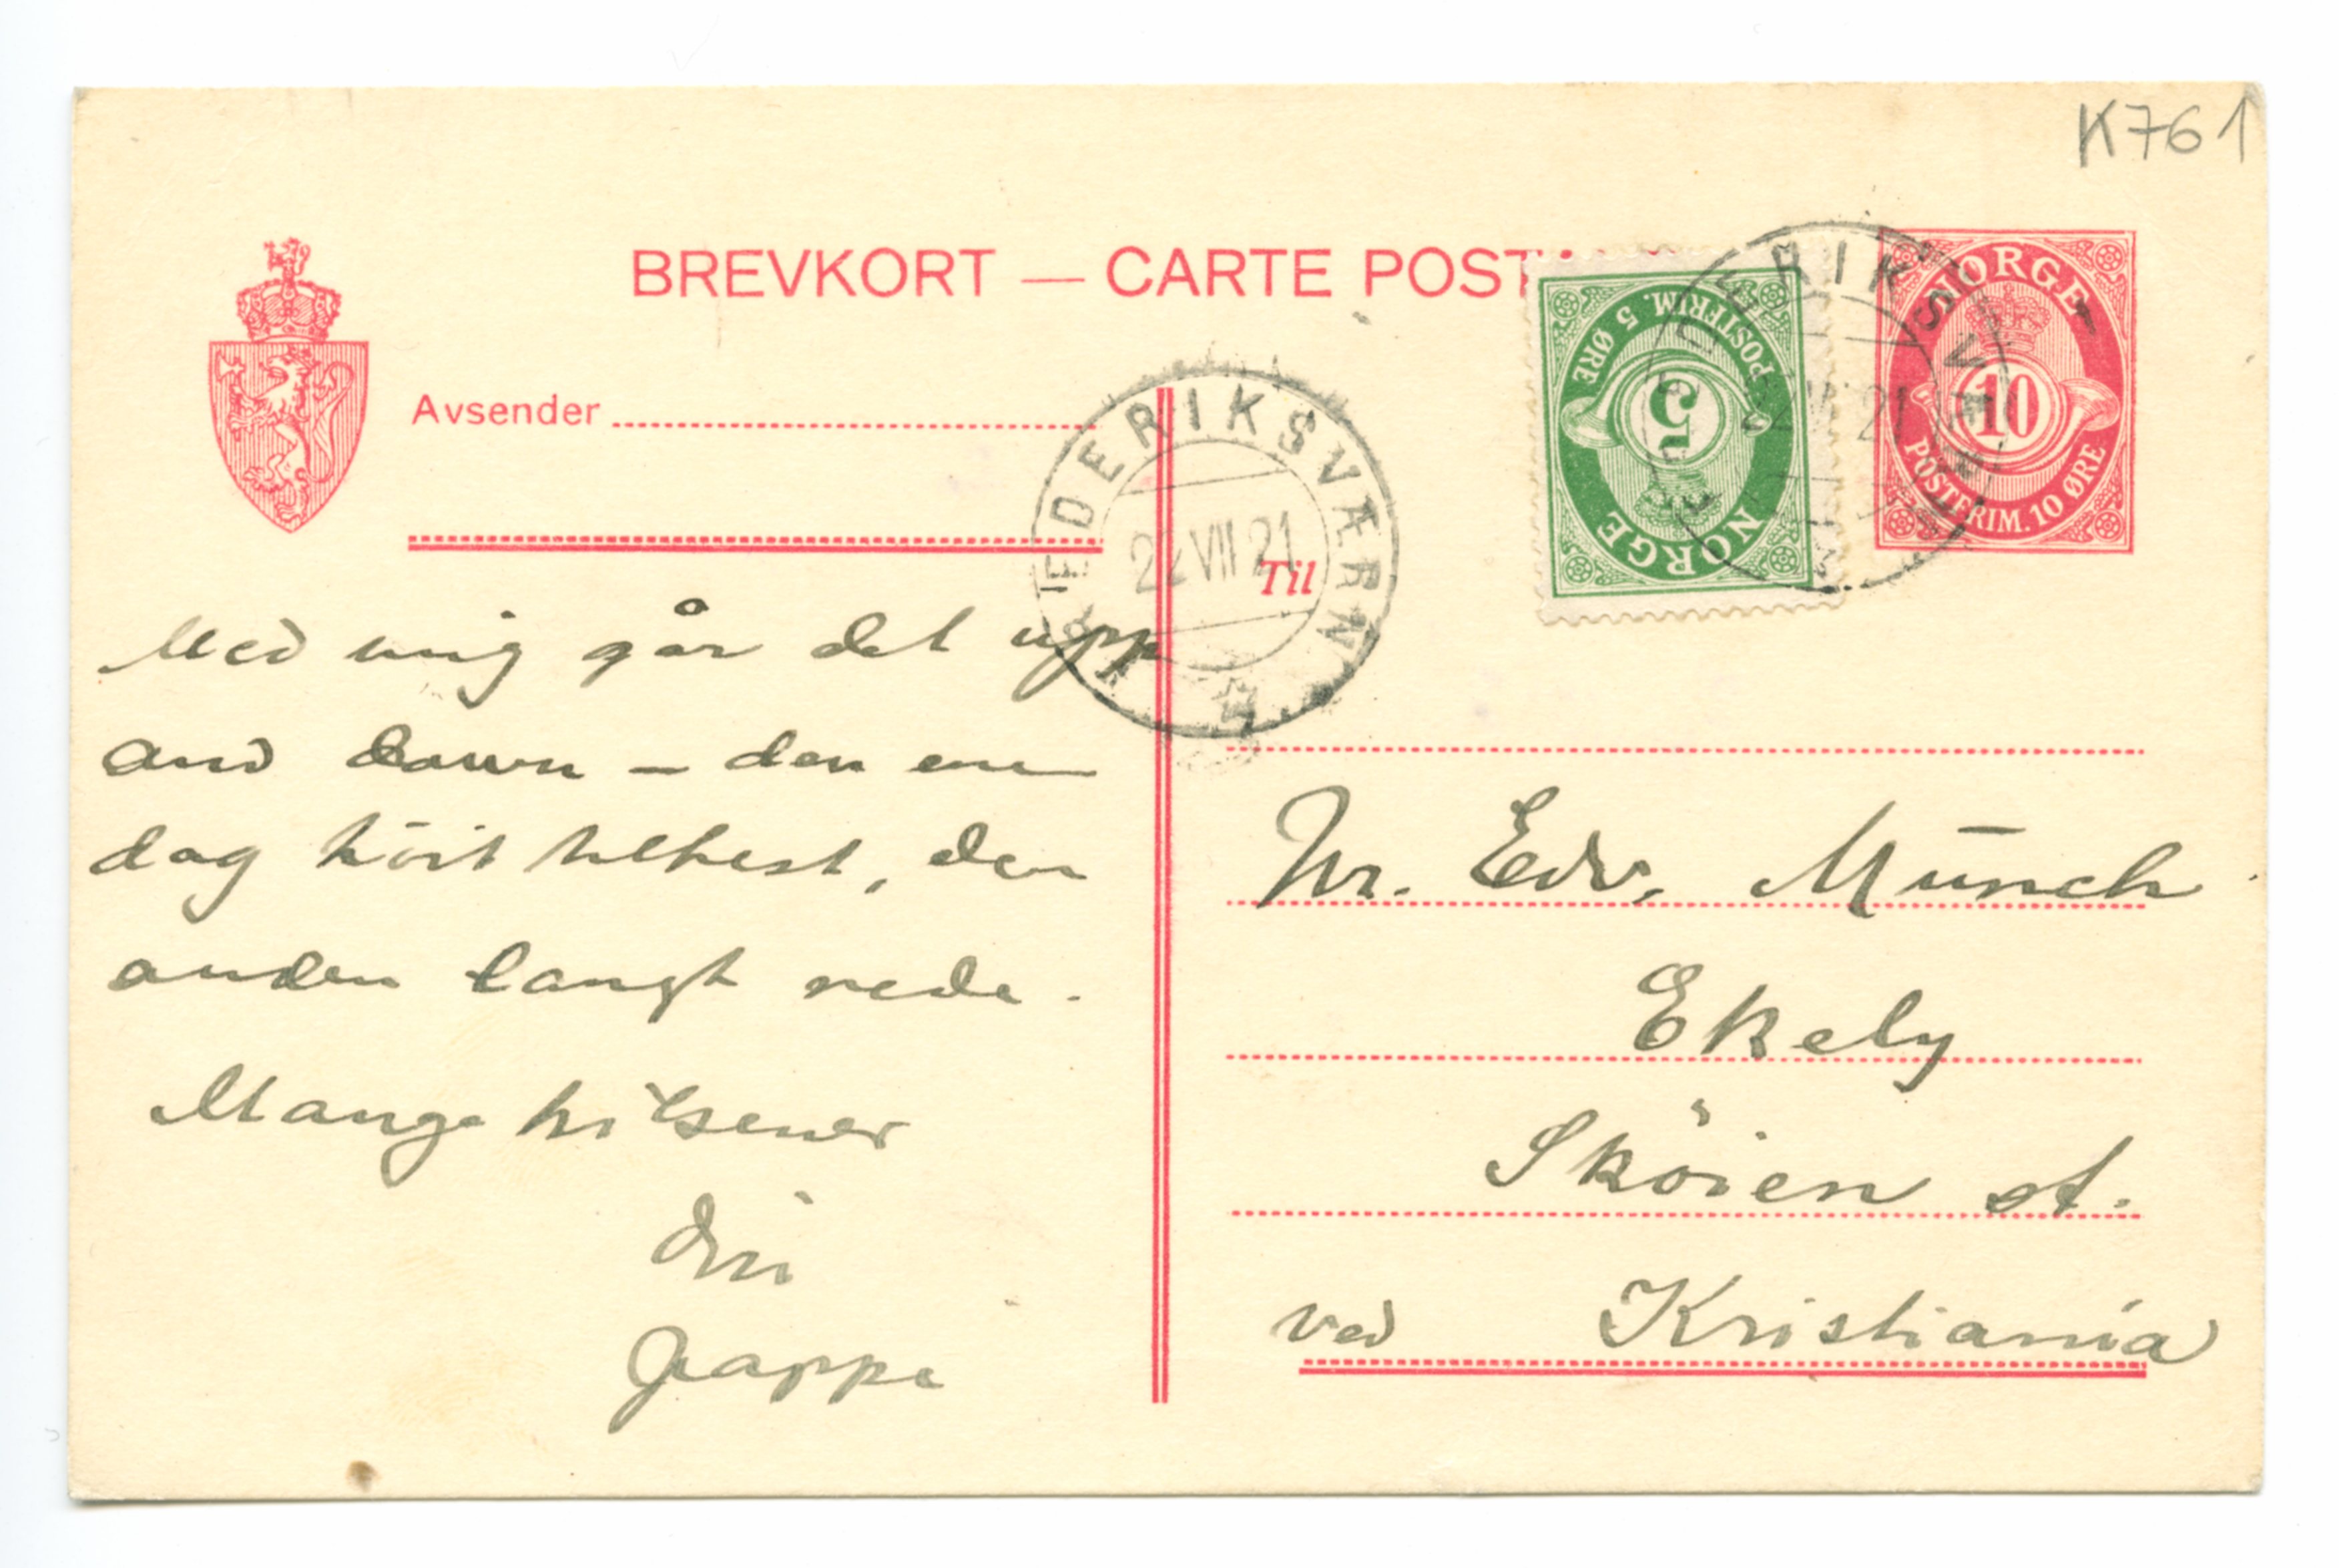 K761
BREVKORT — CARTE POST
NORGE
POSTFRIM. 5 ØRE
5
NORGE
10
POSTFRIM. 10 ØRE
Avsender
FREDERIKSVÆRN
22 VII 21
Til
Med mig går det upp
and down – den ene
dag höit tilhest, den
anden langt nede.
Mange hilsener
din
Jappe
Hr. Edv. Munch
Ekely
Sköien st.
ved Kristiania